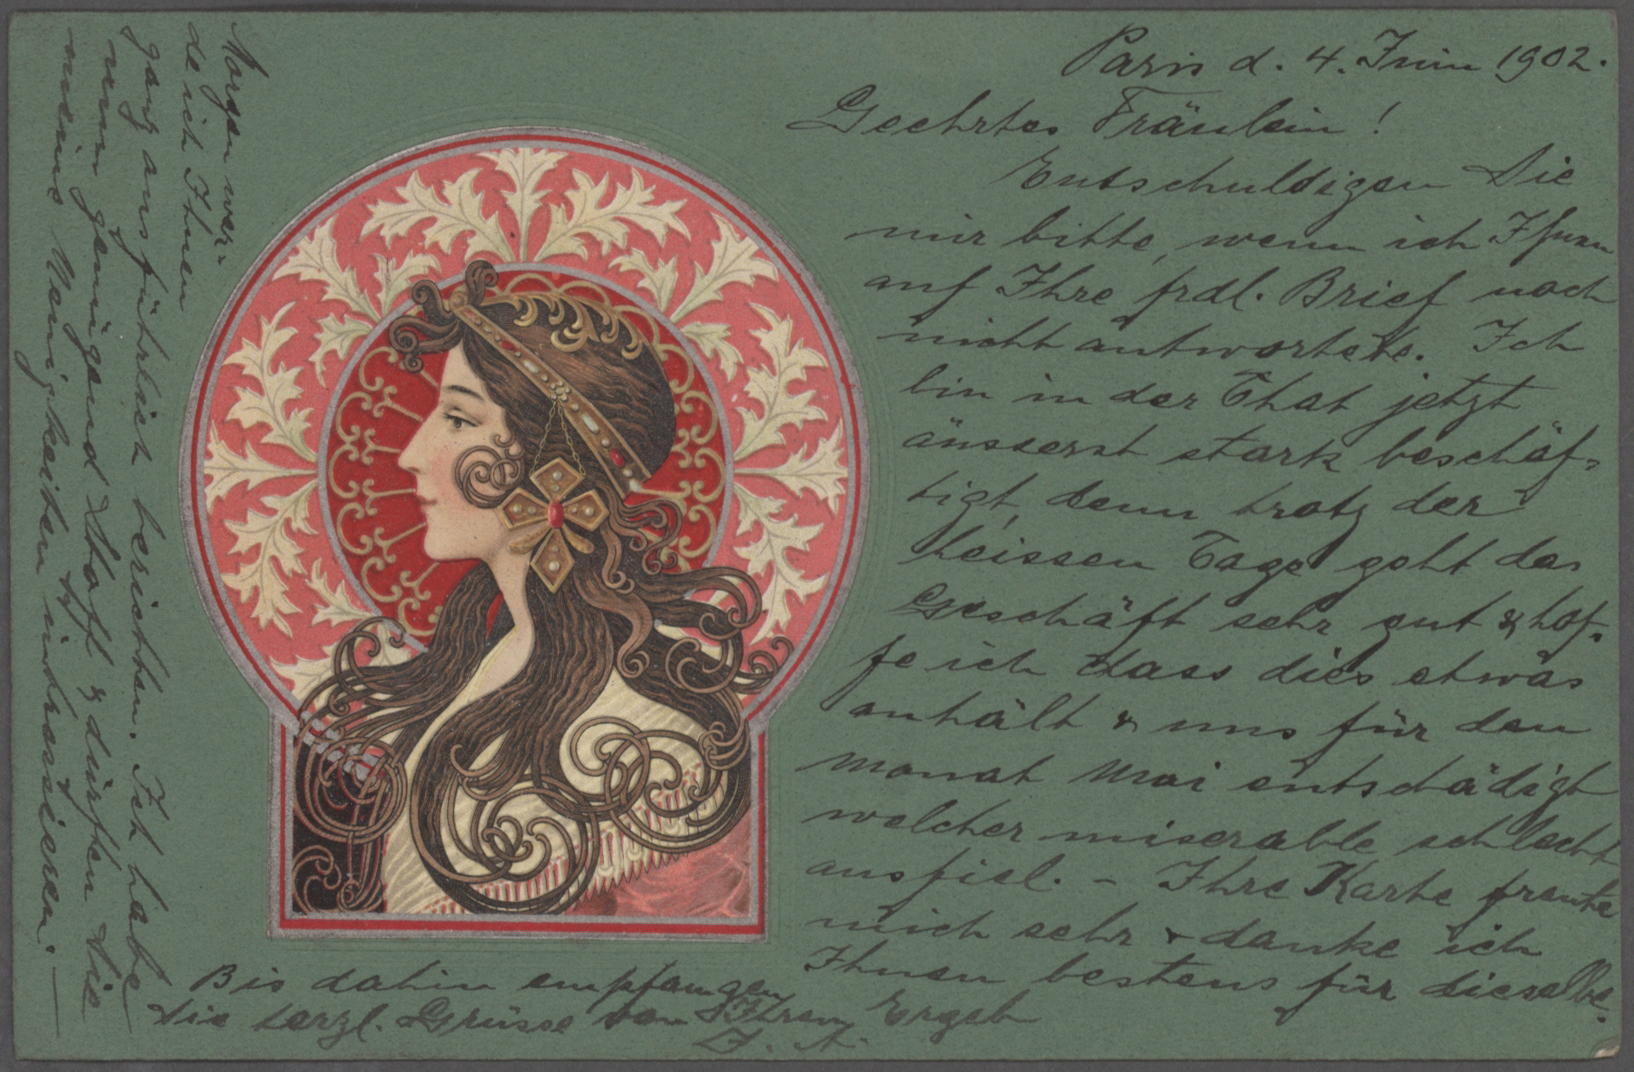 Paris d. 4. Juni 1902.
Geehrtes Fräulein!
Entschuldigen Sie
mir bitte, wenn ich Ihnen
auf Ihre frdl. Brief noch
nicht antwortete. Ich
bin in der That jetzt
äusserst stark beschäf-
tigt, denn trotz der
heissen Tage geht das
Geschäft sehr gut & hof-
fe ich dass dies etwas
anhält & uns für den
Monat Mai entschädigt
welcher miserable schlecht
ausfiel. - Ihre Karte freute
mich sehr & danke ich
Ihnen bestens für dieselbe.
Morgen wer-
de ich Ihnen
ganz ausführlich berichten. Ich habe
nun genügend Stoff & dürften Sie
meine Neuigkeiten interessieren.
Bis dahin empfangen
Sie herzl. Grüsse von Ihrem Ergeb